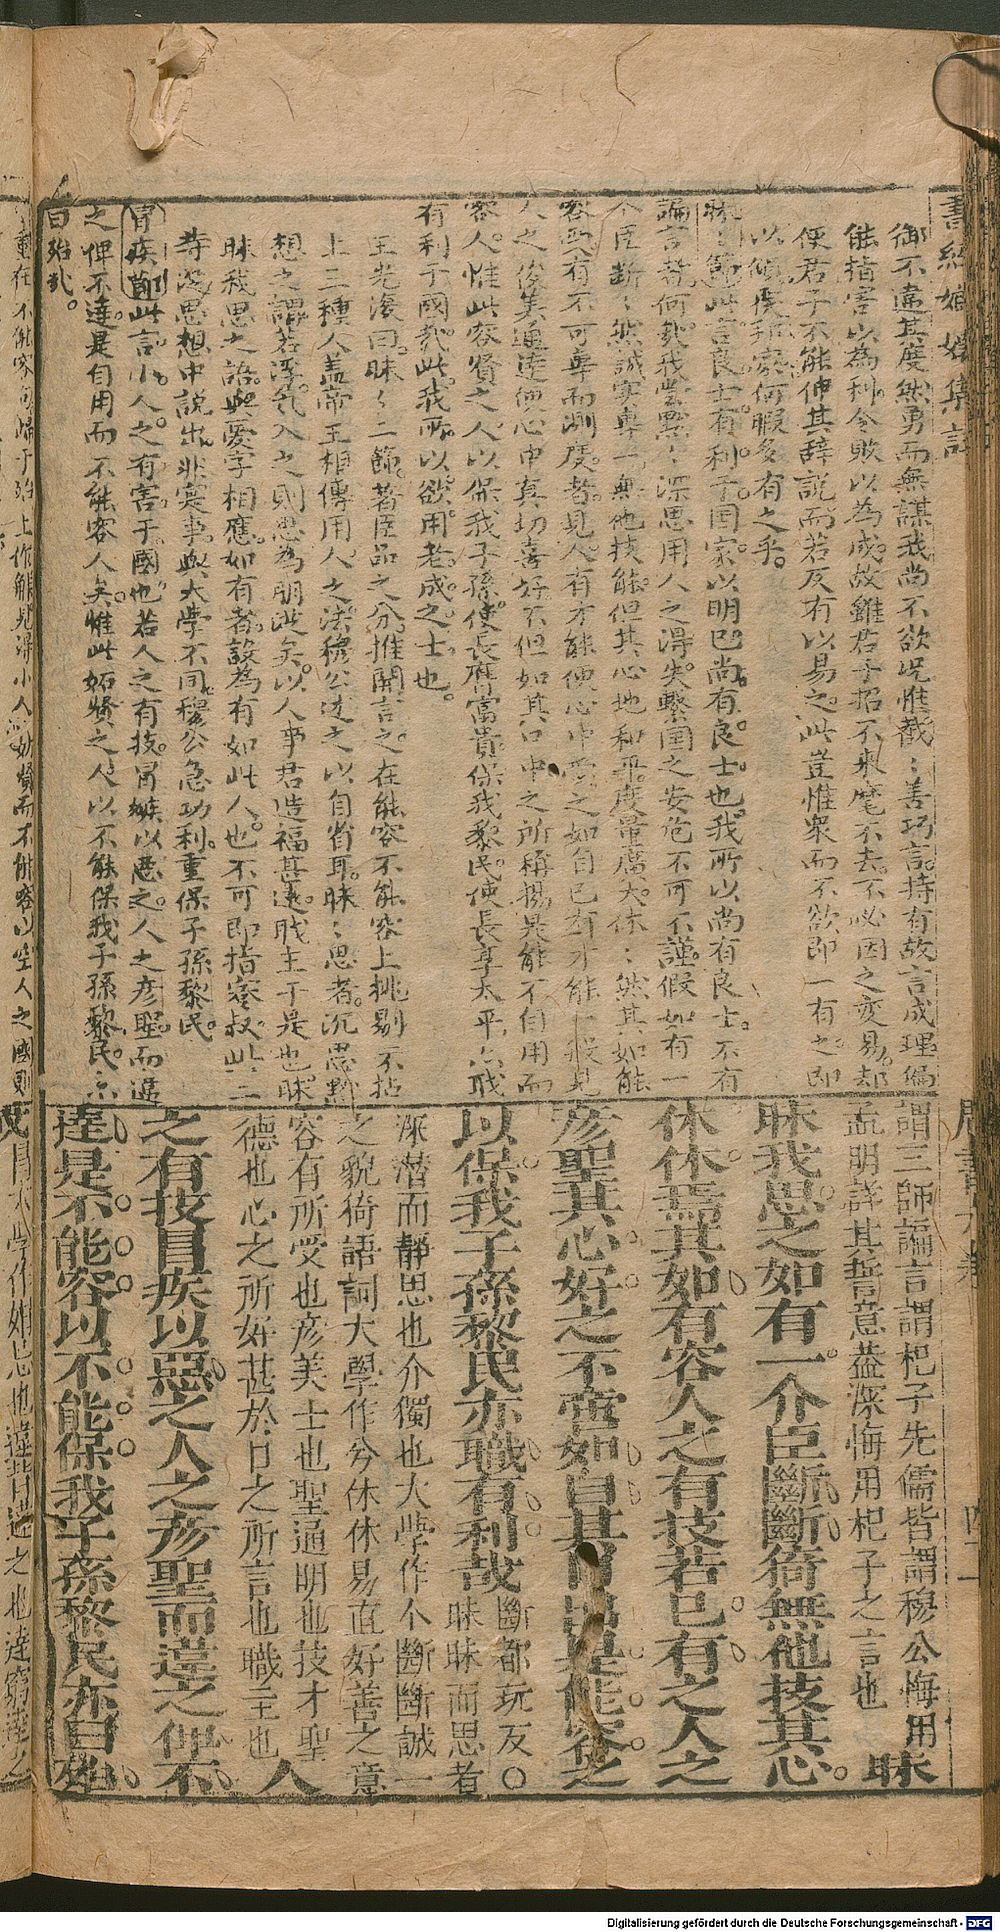 書經嫏嬛集註
御不違其度然勇而無謀我尚不欲况惟截〻善巧言持有故言成理徧
能指害以為利令敗以為成故雖君子招不來麾不去不必因之变易却
使君子不能伸其辞説而若反有以易之此豈惟衆而不欲即一有之即
以傾覆邦家何暇多有之乎
昧〻節此言良士有利于国家以明已尚有良士也我所以尚有良士不有
諞言者何哉我嘗黙〻深思用人之得失繫国之安危不可不謹假如有一
个臣断〻然誠实專一無他技能但其心地和平度量廣大休〻然其如能
容然有不可專而測度者見人有才能便心中愛之如自已有才能一般見
人之俊美通達便心中真切喜好不但如其口中之所稱揚是能不自用而
容人惟此容賢之人以保我子孫使長膺富貴保我黎民使長享太平亦職
有利于國哉此我所以欲用老成之士也
王光濩曰昧〻二節著臣品之分推開言之在能容不能容上挑剔不拈
上三種人盖帝王相傳用人之法穆公述之以自省耳昧〻思者沉思黙
想之謂若浮気入之則思為朋從矣以人事君造福甚遠職主于是也昧
昧我思之語與愛字相應如有者設為有如此人也不可即指蹇叔此二
等沉思想中說出非寔事與大學不同穆公急功利重保子孫黎民
冒疾節此言小人之有害于國也若人之有技冒嫉以惡之人之彦聖而違
之俾不達是自用而不能容人矣惟此妬賢之人以不能保我子孫黎民亦
曰殆哉
周書九卷
四十一
謂三師諞言謂杞子先儒皆謂穆公悔用
孟明詳其誓意葢深悔用杞子之言也
昧
昧我思之如有一介臣斷斷猗無他技其心
休休焉其如有容人之有技若已有之人之
彦聖其心好之不啻如自其口出是能容之
以保我子孫黎民亦職有利哉
斷都玩反○
昧昧而思者
深潛而靜思也介獨也大學作个斷斷誠一
之貌猗語詞大學作兮休休易直好善之意
容有所受也彦美士也聖通明也技才聖
德也心之所好甚於口之所言也職主也
人
之有技冒疾以惡之人之彦聖而違之俾不
達是不能容以不能保我子孫黎民亦曰殆
Digitalisierung gefördert durch die Deutsche Forschungsgemeinschaft - DFG